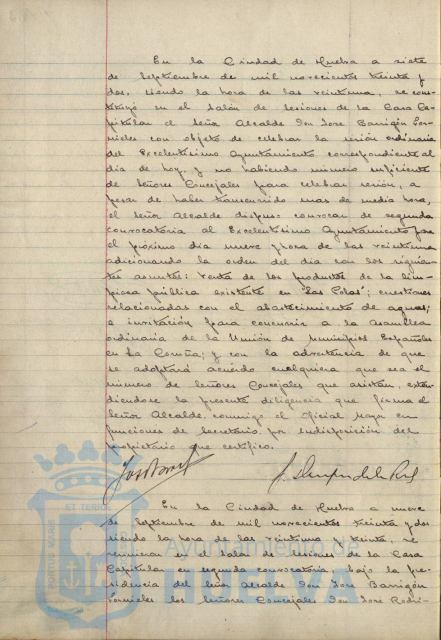 En la Ciudad de Huelva a siete
de Septiembre de mil novecientos treinta y
dos, siendo la hora de las veintiuna, se cons-
tituyó en el Salón de sesiones de la Casa Ca-
pitular el Señor Alcalde Don José Barrigón For-
nieles con objeto de celebrar la sesión ordinaria
del Excelentísimo Ayuntamiento correspondiente al
día de hoy, y no habiendo número suficiente
de Señores Concejales para celebrar sesión, a
pesar de haber transcurrido mas de media hora,
el Señor Alcalde dispuso convocar de segunda
convocatoria al Excelentísimo Ayuntamiento para
el próximo día nueve y hora de las veintiuna
adicionando la orden del día con los siguien-
tes asuntos: venta de los productos de la lim-
pieza pública existente en "Las Colas"; cuestiones
relacionadas con el abastecimiento de aguas;
e invitación para concurrir a la Asamblea
ordinaria de la Unión de Municipios Españoles
en La Coruña; y con la advertencia de que
se adoptará acuerdo cualquiera que sea el
número de Señores Concejales que asistan, exten-
diendose la presente diligencia que firma el
Señor Alcalde, conmigo el Oficial Mayor en
funciones de Secretario por indisposición del
propietario que certifico.
En la Ciudad de Huelva a nueve
de Septiembre de mil novecientos treinta y dos
siendo la hora de las veintiuna y treinta, se
reunieron en el Salón de sesiones de la Casa
Capitular en segunda convocatoria, bajo la pre-
sidencia del Señor Alcalde Don José Barrigón
Fornieles los Señores Concejales Don José Rodri-
PORTUS MARIS
ET TERRAE
Ayuntamiento de
HUELVA